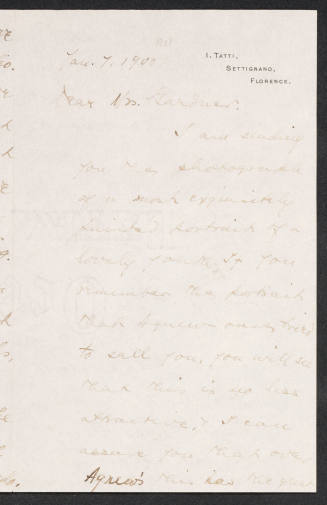 Jan. 7, 1901
I TATTI,
SETTIGNANO,
FLORENCE.
Dear Mrs. Gardner:
I am sending
you the photographs
of a most exquisitely
painted portrait of a
lovely youth. If you
remember the portrait
that Agnew once tried
to sell you, you will see
that this is no less
attractive, & I can
assure you that over
Agnew's this has the great